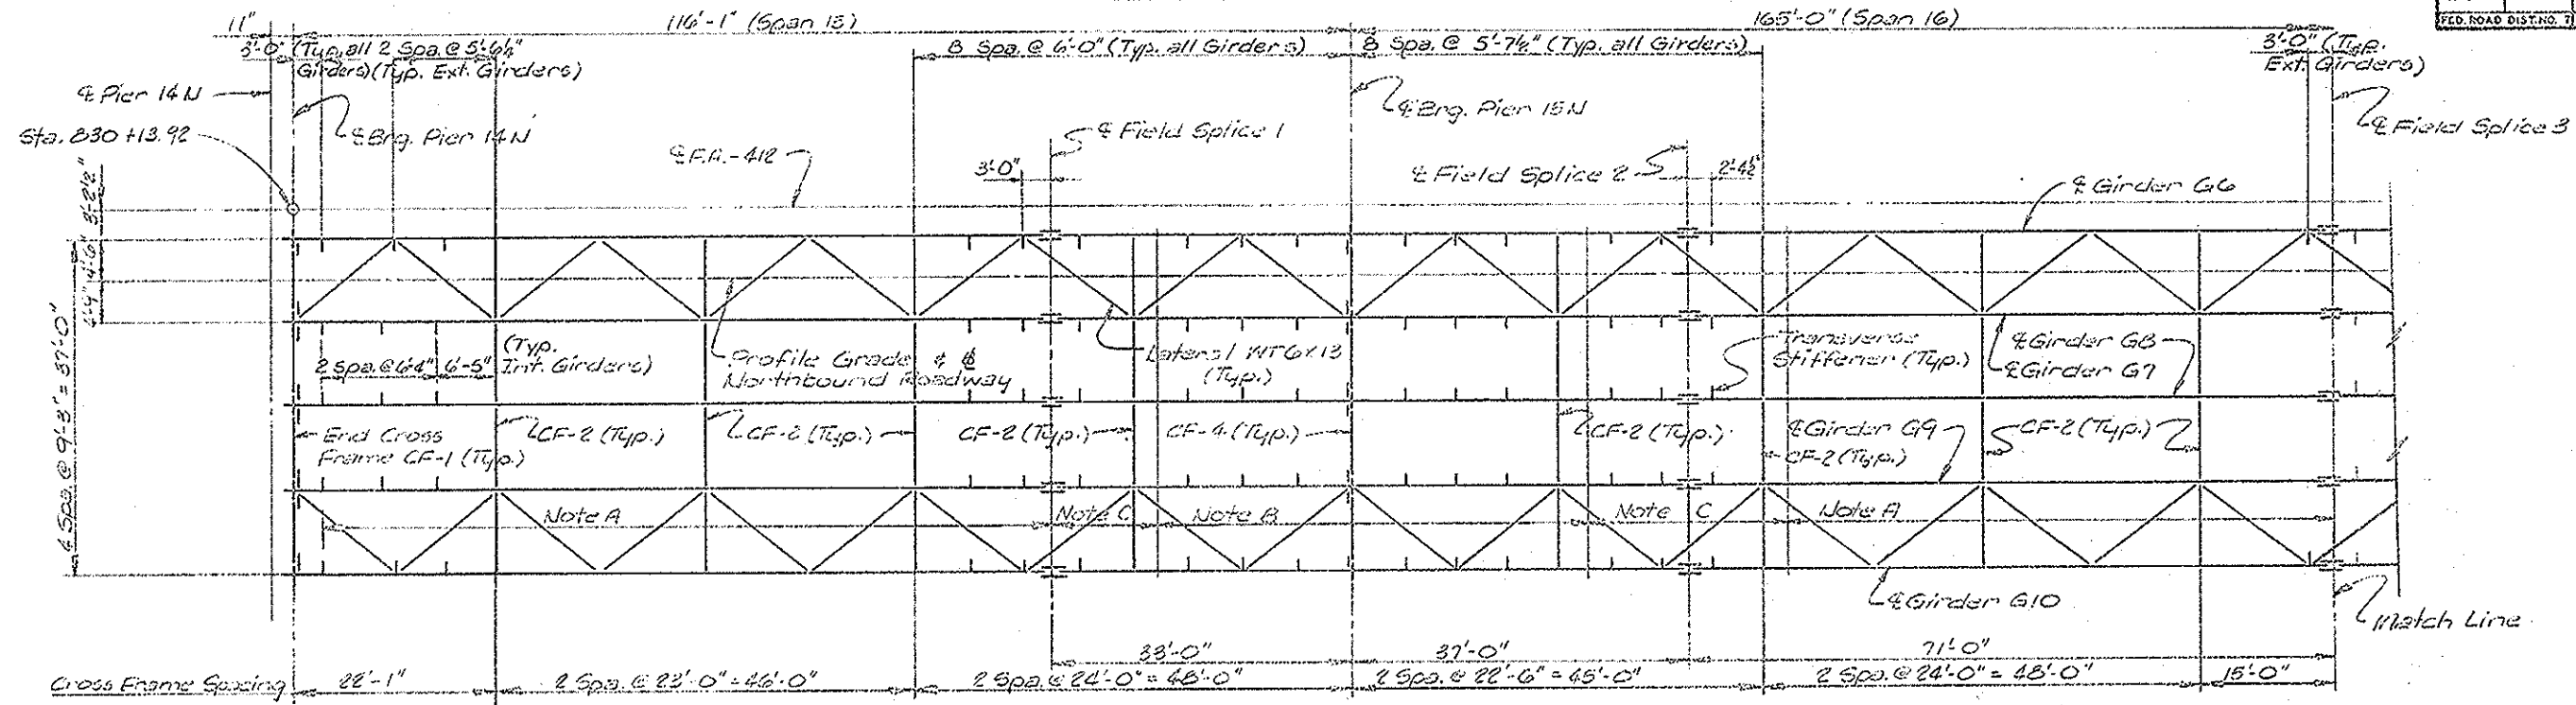 116'-1" (Span 15)
165'-0" (Span 16)
FED. ROAD DIST. NO. 7
11"
3'-0" (Typ. all Girders)
2 Spa. @ 5'-6½" (Typ. Ext. Girders)
8 Spa. @ 6'-0" (Typ. all Girders)
8 Spa. @ 5'-7½" (Typ. all Girders)
3'-0" (Typ. Ext. Girders)
℄ Pier 14N
℄ Brg. Pier 14N
Sta. 830+13.92
℄ F.A.-412
℄ Field Splice 1
3'-0"
℄ Brg. Pier 15N
℄ Field Splice 2
2'-4½"
℄ Field Splice 3
℄ Girder G6
3'-2½"
4'-6"
4 Spa. @ 9'-3" = 37'-0"
2 Spa. @ 6'-4"
6'-5"
(Typ. Int. Girders)
Profile Grade & ℄
Northbound Roadway
Lateral WT6x13
(Typ.)
Transverse
Stiffener (Typ.)
℄ Girder G8
℄ Girder G7
End Cross
Frame CF-1 (Typ.)
CF-2 (Typ.)
CF-2 (Typ.)
CF-2 (Typ.)
CF-4 (Typ.)
CF-2 (Typ.)
℄ Girder G9
CF-2 (Typ.)
CF-2 (Typ.)
Note A
Note C
Note B
Note C
Note A
℄ Girder G10
Match Line
33'-0"
37'-0"
71'-0"
Cross Frame Spacing
22'-1"
2 Spa. @ 23'-0" = 46'-0"
2 Spa. @ 24'-0" = 48'-0"
2 Spa. @ 22'-6" = 45'-0"
2 Spa. @ 24'-0" = 48'-0"
15'-0"